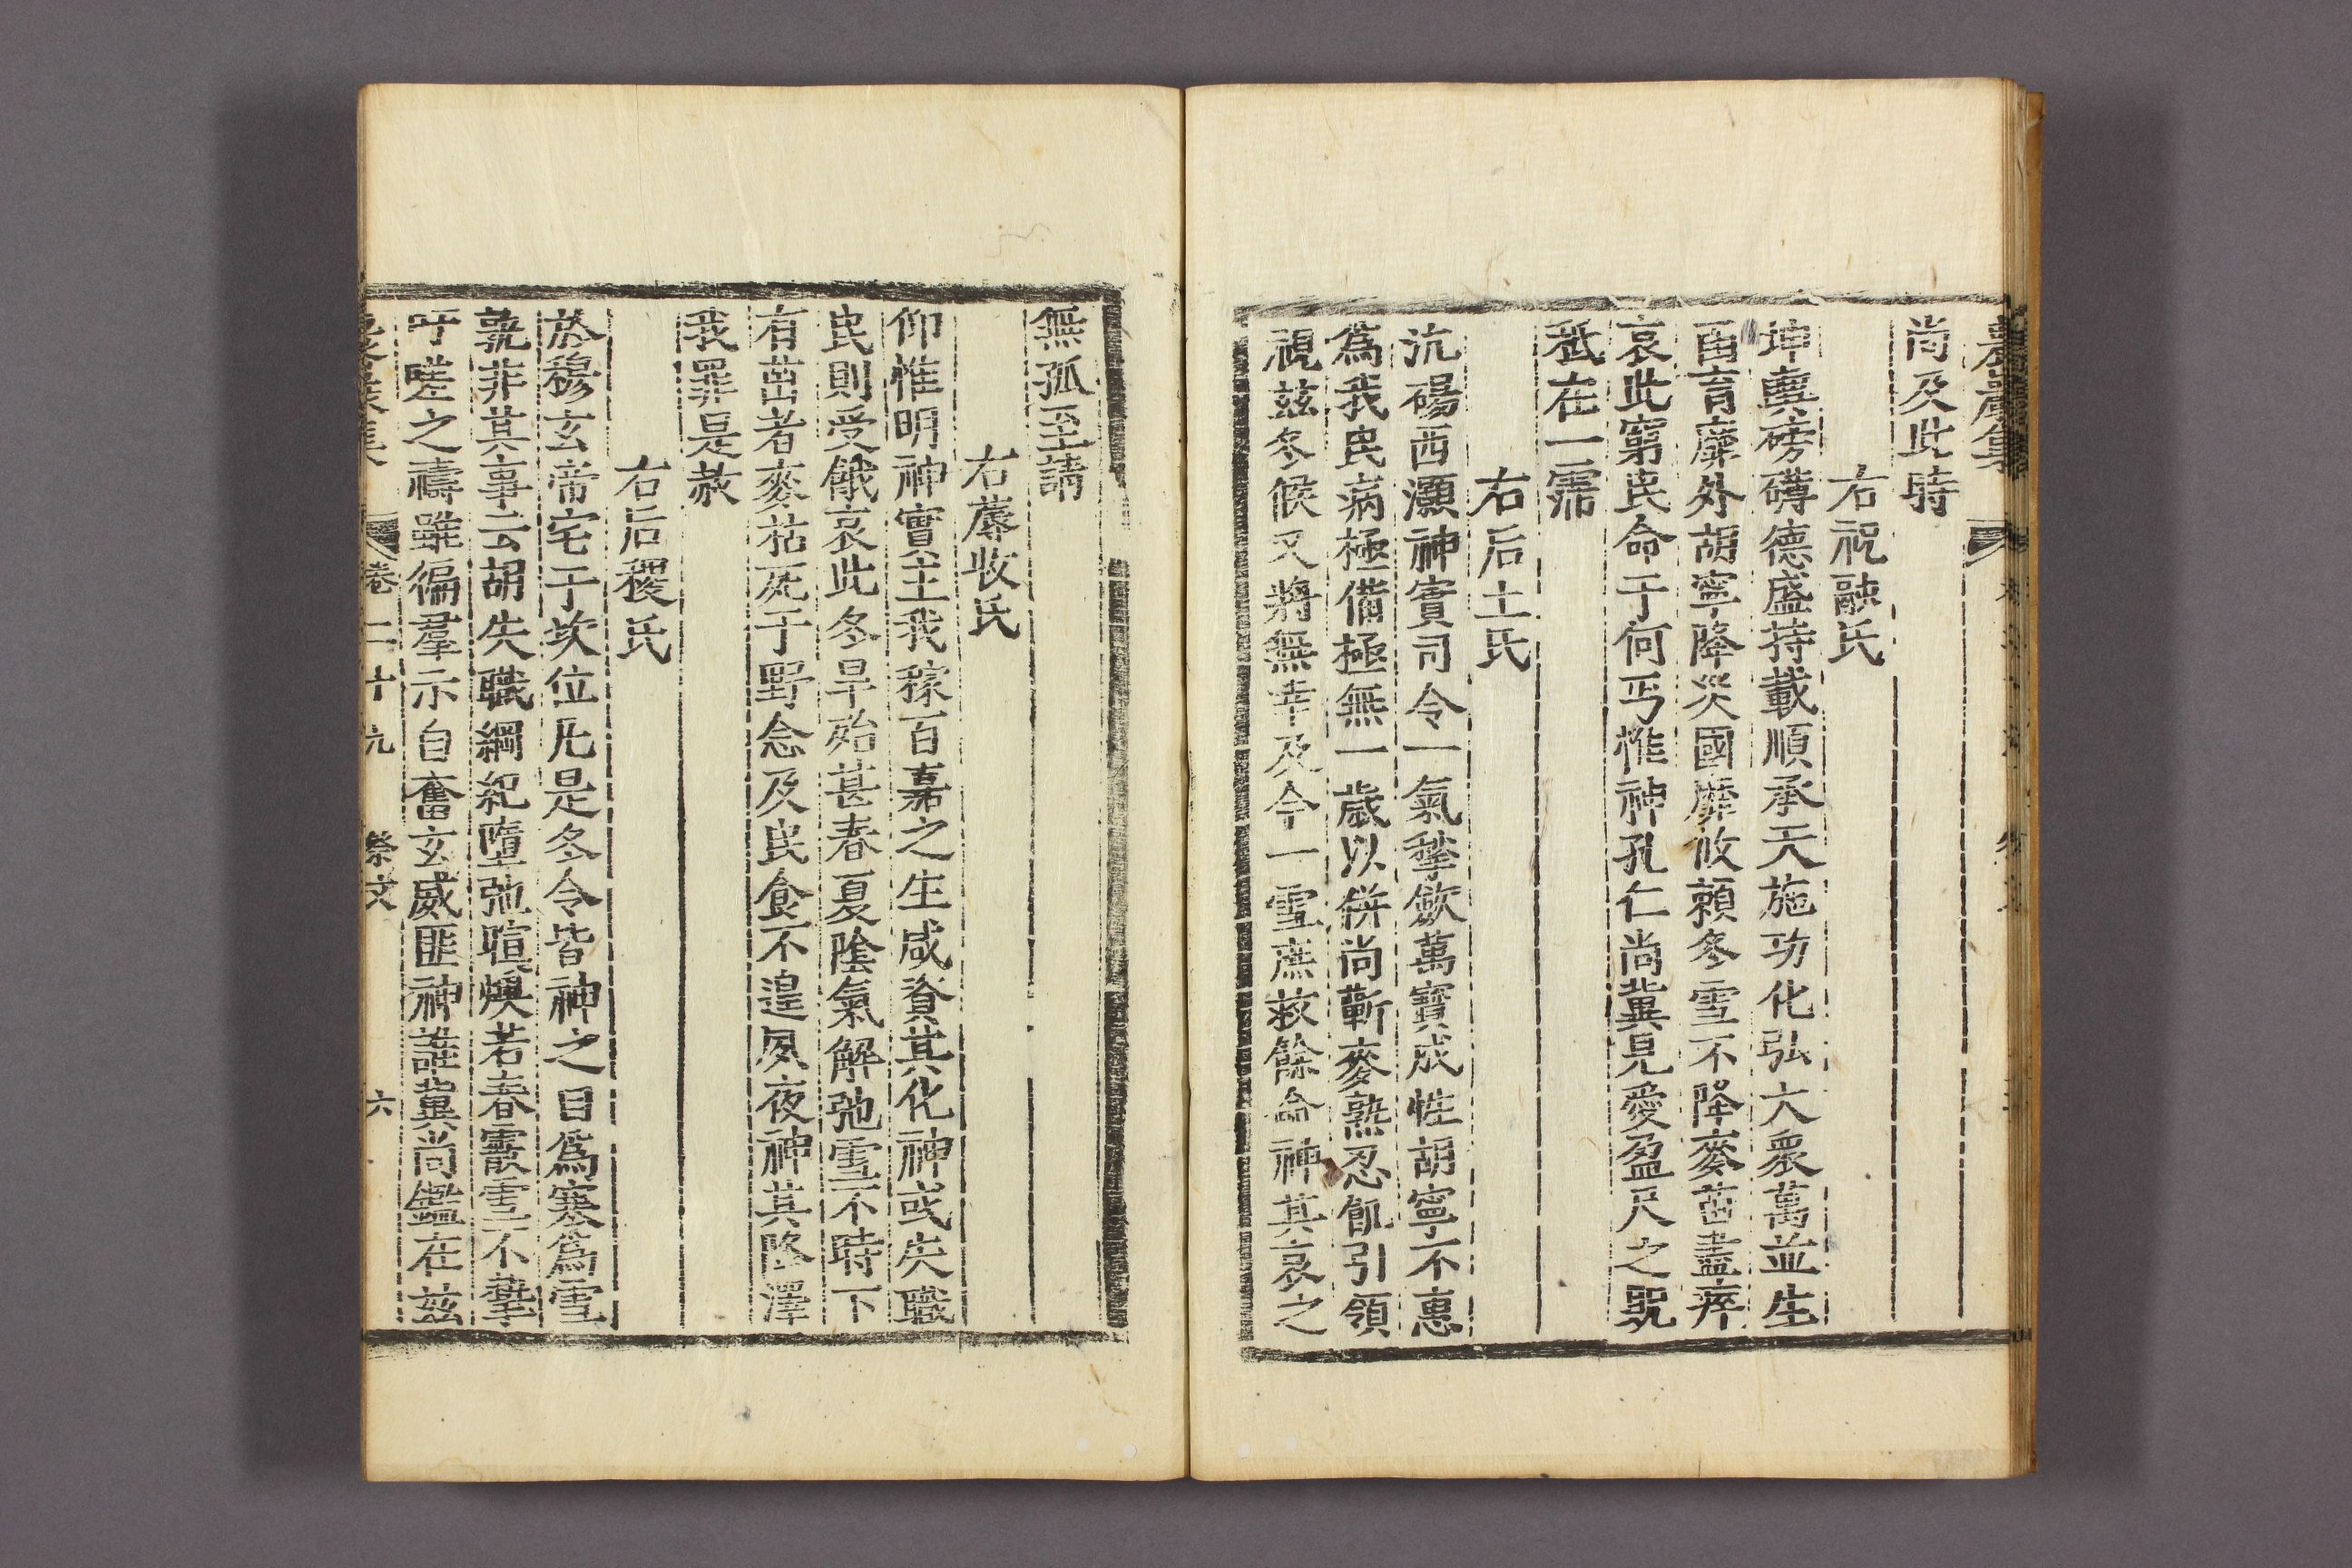 農巖集
尚及此時
右祝融氏
坤輿磅礴德盛持載順承天施功化弘大衆萬並生
靡外胡寧降災國靡攸賴冬雪不降麥苗盡瘁
哀此窮民命于何丐惟神孔仁尚冀見愛盈尺之
秪在一霈
右后土氏
沆碭西灝神實司令一氣揫斂萬寶成性胡寧不惠
爲我民病極備極無一歲以倂尚蘄麥熟忍飢引領
視玆冬候又將無幸及今一雪庶救餘命神其哀之
無孤至請
右蓐收氏
仰惟明神實主我稼百嘉之生咸資其化神或失職
民則受餓哀此冬旱殆甚春夏陰氣解弛雪不時下
有苗者麥枯死于野念及民食不遑夙夜神其降澤
我罪是赦
右后稷氏
於穆玄帝宅于坎位凡是冬令皆神之目爲寒爲雪
孰非其事云胡失職綱紀墮弛暄燠若春霰雪不
吁嗟之禱雖徧羣示自奮玄威匪神誰冀尚鑑在玆
卷二十九 祭文 六